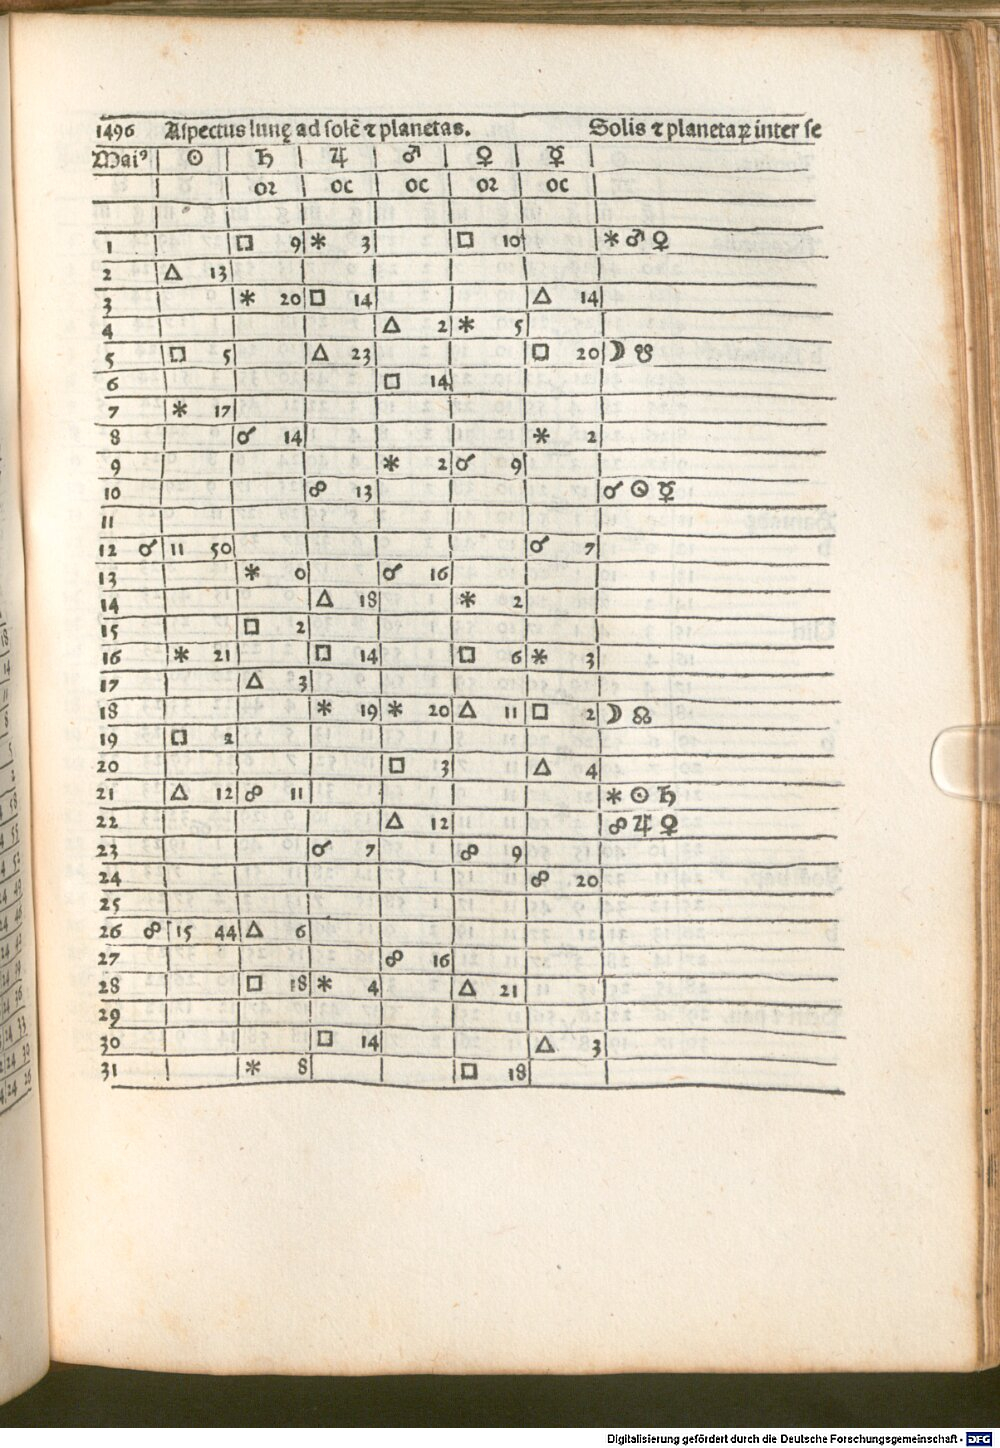 1496 Aſpectus lunę ad ſolē ⁊ planetas. Solis ⁊ planetaꝝ inter ſe
Maiꝰ ☉ ♄ ♃ ♂ ♀ ☿
oꝛ oc oc oꝛ oc
1 □ 9 ⚹ 3 □ 10 ⚹ ♂ ♀
2 △ 13
3 ⚹ 20 □ 14 △ 14
4 △ 2 ⚹ 5
5 □ 5 △ 23 □ 20 ☽ ☋
6 □ 14
7 ⚹ 17
8 ☌ 14 ⚹ 2
9 ⚹ 2 ☌ 9
10 ☍ 13 ☌ ☉ ☿
11
12 ☌ 11 50 ☌ 7
13 ⚹ 0 ☌ 16
14 △ 18 ⚹ 2
15 □ 2
16 ⚹ 21 □ 14 □ 6 ⚹ 3
17 △ 3
18 ⚹ 19 ⚹ 20 △ 11 □ 2 ☽ ☊
19 □ 2
20 □ 3 △ 4
21 △ 12 ☍ 11 ⚹ ☉ ♄
22 △ 12 ☍ ♃ ♀
23 ☌ 7 ☍ 9
24 ☍ 20
25
26 ☍ 15 44 △ 6
27 ☍ 16
28 □ 18 ⚹ 4 △ 21
29
30 □ 14 △ 3
31 ⚹ 8 □ 18
Digitalisierung gefördert durch die Deutsche Forschungsgemeinschaft - DFG